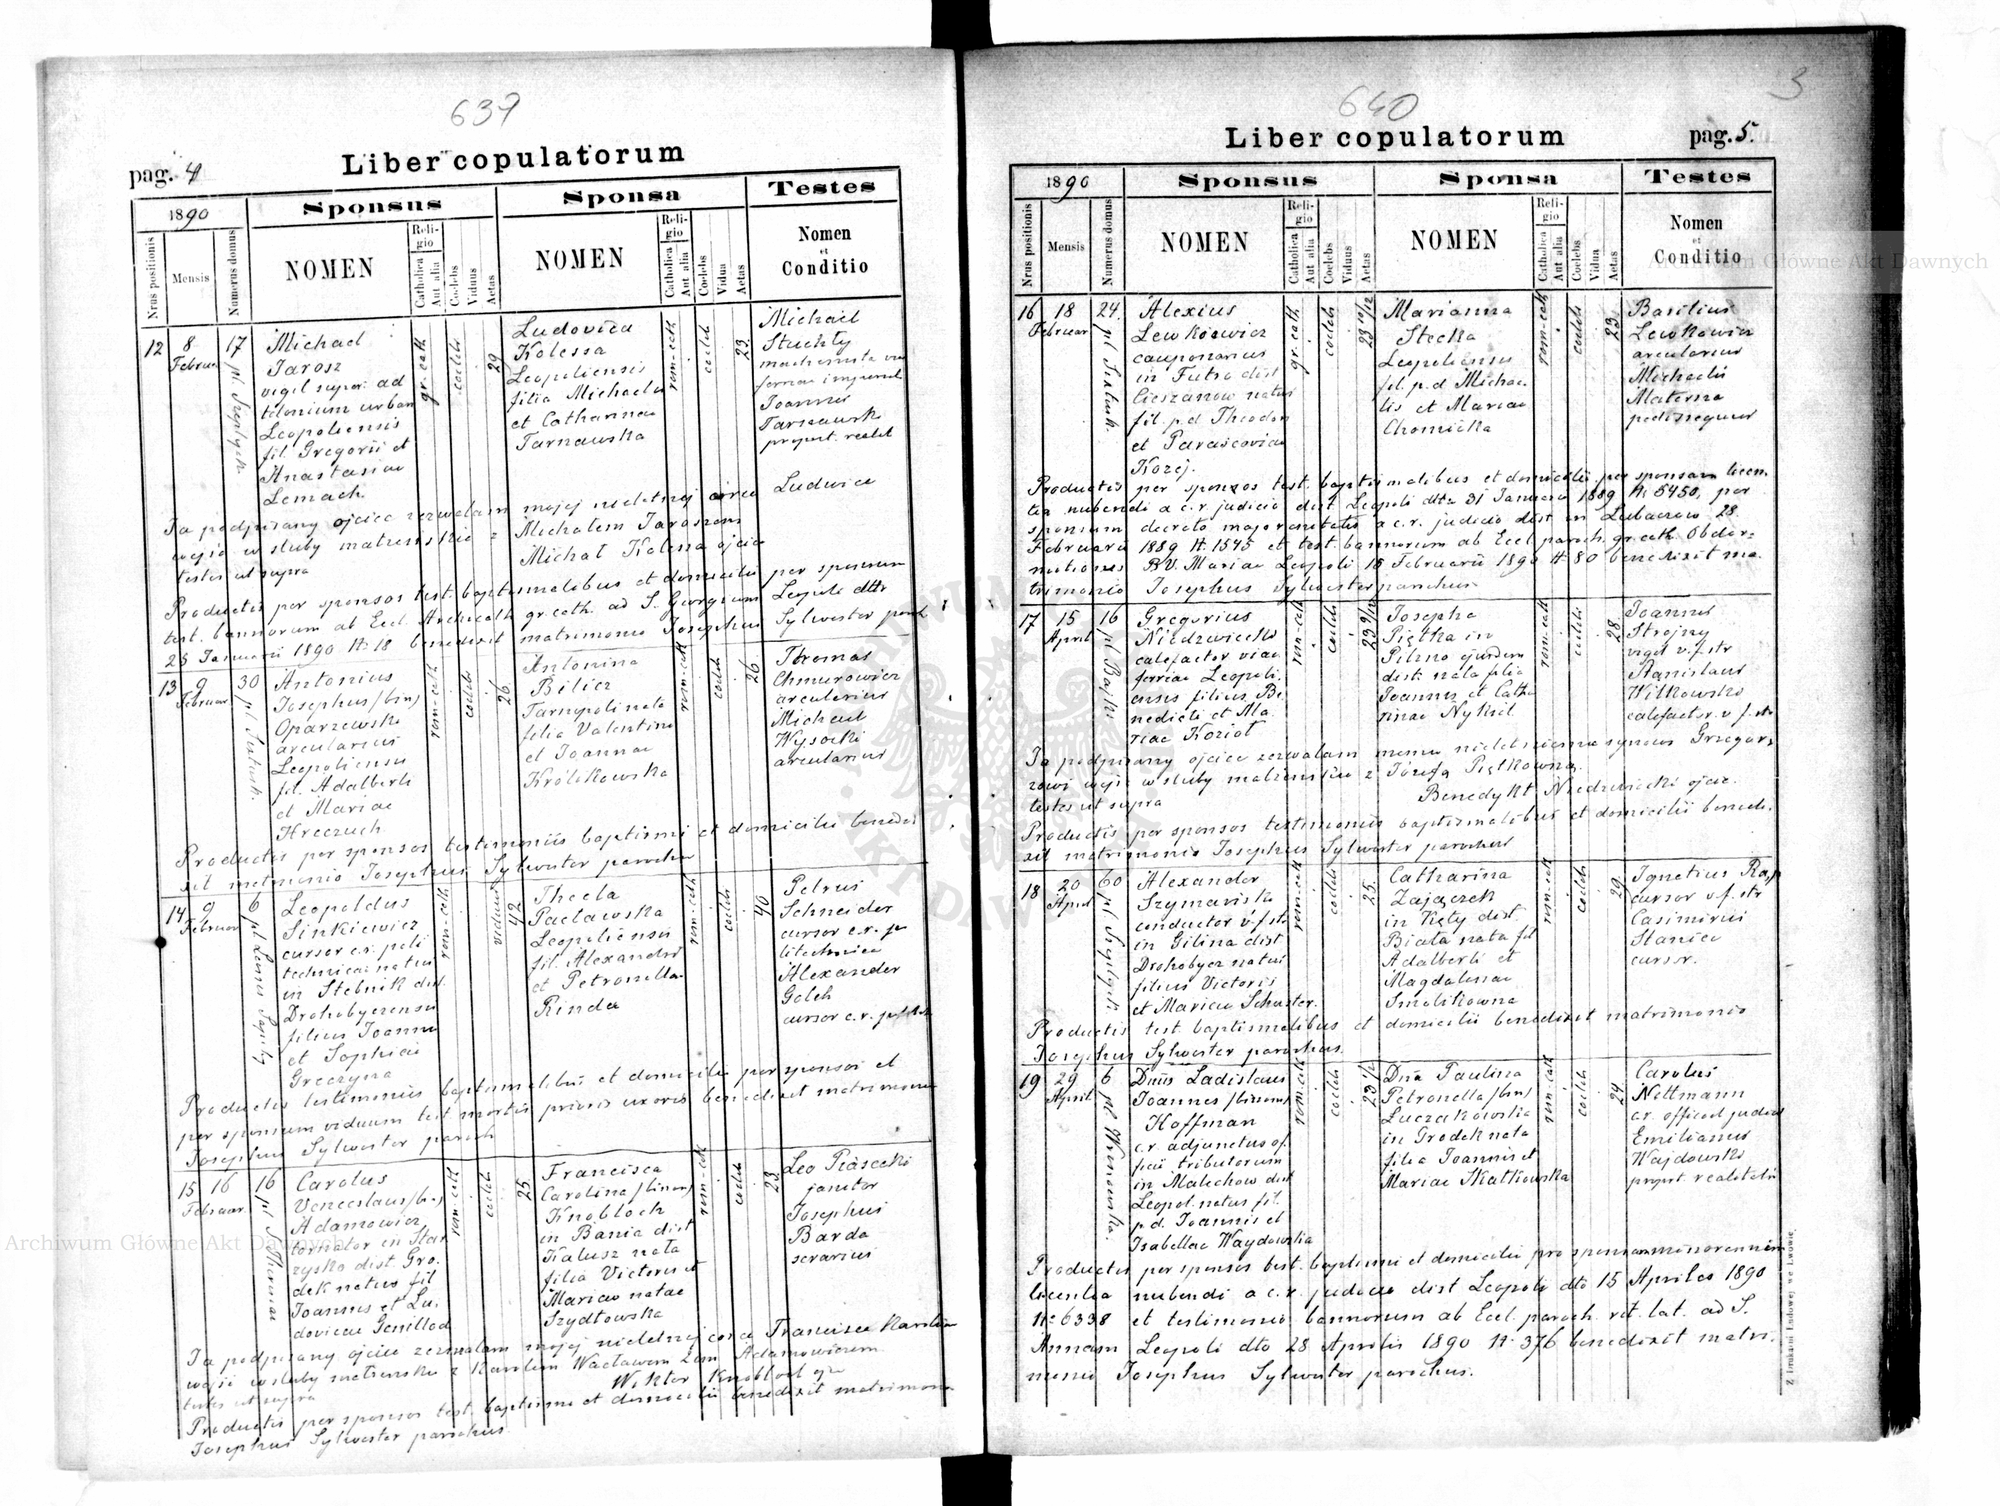 637
Liber copulatorum
pag. 4
1890
Sponsus
Sponsa
Testes
Nrus positionis
Mensis
Numerus domus
NOMEN
Religio
Catholica
Aut alia
Coelebs
Viduus
Aetas
NOMEN
Religio
Catholica
Aut alia
Coelebs
Vidua
Aetas
Nomen
et
Conditio
12
8
Februar
17
Michael
Jarosz
vigil super. ad
telonium urban
Leopoliensis
fil. Gregorii et
Anastasiae
Lemach
gr. cath
coelebs
29
Ludovica
Kolessa
Leopoliensis
filia Michaelis
et Catharinae
Tarnawska
rom-cath
coelebs
23
Michael
Stuchly
Joannes
Tarnawski
propriet. realit
Ja podpisany ojciec zezwalam mojej nieletniej córce Ludwice
wejść w śluby małżeńskie z Michałem Jaroszem
testes ut supra
Michał Kolessa ojciec
Productis per sponsos test. baptismalibus et domicilii per sponsum
test. bannorum ab Eccl. Archicath gr. cath. ad S. Georgium Leopoli dtto
25 Januarii 1890 N. 18 benedixit matrimonio Josephus Sylwester paroch
13
9
Februar
30
Antonius
Josephus /bin/
Oparzewski
arcularius
Leopoliensis
fil. Adalberti
et Mariae
Hreczuch
rom-cath
coelebs
26
Antonina
Bilicz
Tarnopoli nata
filia Valentini
et Joannae
Królikowska
rom-cath
coelebs
26
Thomas
Chmurowicz
arcularius
Michael
Wysocki
arcularius
Productis per sponsos testimoniis baptismi et domicilii benedi
xit matrimonio Josephus Sylwester parochus
14
9
Februar
6
pl Leonis Sapihy
Leopoldus
Sinkiewicz
cursor c.r. poli
technicae natus
in Stebnik dist
Drohobycensis
filius Joannis
et Sophiae
Greczyna
rom-cath
viduus
42
Thecla
Paclawska
Leopoliensis
fil. Alexandri
et Petronella
Rinda
rom-cath
coelebs
40
Petrus
Schneider
cursor c.r. po
litechnicae
Alexander
Golch
cursor c.r.
Productis testimoniis baptismalibus et domicilii per sponsos et
per sponsum viduum test mortis prioris uxoris benedixit matrimonio
Josephus Sylwester paroch
15
16
Februar
16
Carolus
Venceslaus /bin/
Adamowicz
tornator in Star
zysko dist. Gro
dek natus fil
Joannis et Lu
dovicae Genillod
rom-cath
coelebs
25
Francisca
Carolina /binom/
Knobloch
in Bania dist
Kalusz nata
filia Victoris et
Mariae natae
Szydłowska
rom-cath
coelebs
23
Leo Piasecki
janitor
Josephus
Barda
serarius
Ja podpisany ojciec zezwalam mojej nieletniej córce Francisce Karolinie
wejść w śluby małżeńskie z Karolem Wacławem 2im Adamowiczem
testes ut supra
Wiktor Knobloch ojciec
Productis per sponsos test. baptismi et domicilii benedixit matrimonio
Josephus Sylwester parochus
640
3
Liber copulatorum
pag. 5.
1890
Sponsus
Sponsa
Testes
Nrus positionis
Mensis
Numerus domus
NOMEN
Religio
Catholica
Aut alia
Coelebs
Viduus
Aetas
NOMEN
Religio
Catholica
Aut alia
Coelebs
Vidua
Aetas
Nomen
et
Conditio
16
18
Februar
24
Alexius
Lewkowicz
cauponarius
in Futro dist
Cieszanow natus
fil. p.d Theodori
et Parascoviae
Kozej.
gr. cath
coelebs
23 10/12
Marianna
Stecka
Leopoliensis
fil. p.d Michae
lis et Mariae
Chomicka
rom-cath
coelebs
23
Basilius
Lewkowicz
arcularius
Michaelis
Materna
pedissequus
Productis per sponsos test. baptismalibus et domicilii per sponsam licen
tia nubendi a c.r. judicio dist Leopoli dtto 31 Januarii 1889 N. 5450, per
sponsum decreto majorennitatis a c.r. judicio dist in Lubaczow 28
Februarii 1889 N. 1545 et test. bannorum ab Eccl paroch gr. cath. Obdor
mitionis B.V. Mariae Leopoli 18 Februarii 1890 N 80 benedixit ma
trimonio Josephus Sylwester parochus
17
15
April
16
pl Bajki
Gregorius
Niedzwiecki
calefactor viae
ferriae Leopoli
ensis filius Be
nedicti et Ma
riae Kozioł
rom-cath
coelebs
23 9/12
Josepha
Piętka in
Pilzno ejusdem
dist. nata filia
Joannis et Catha
rinae Nykiel
rom-cath
coelebs
28
Joannes
Strojny
vigil v.f. str
Stanislaus
Witkowski
calefactor v f. str
Ja podpisany ojciec zezwalam memu nieletniemu synowi Grzego
rzowi wejść w śluby małżeńskie z Józefą Piętkówną.
testes ut supra
Benedykt Niedzwiecki ojciec
Productis per sponsos testimoniis baptismalibus et domicilii benedi
xit matrimonio Josephus Sylwester parochus
18
20
April
60
Alexander
Szymański
conductor v. f. str
in Gilina dist
Drohobycz natus
filius Victoris
et Mariae Schuster
rom-cath
coelebs
25
Catharina
Zajączek
in Kęty dist.
Biała nata fil
Adalberti et
Magdalenae
Smolikowna
rom-cath
coelebs
29
Ignatius Rap
cursor v f. str
Casimirus
Stanica
cursor.
Productis test. baptismalibus et domicilii benedixit matrimonio
Josephus Sylwester parochus.
19
29
April
6
Dnus Ladislaus
Joannes /binom/
Hoffman
c.r adjunctus of
ficii tributorum
in Malechow dist
Leopol. natus fil.
p.d. Joannis et
Isabellae Waydowska
rom-cath
coelebs
23 1/2
Dna Paulina
Petronella /bin/
Luczakowska
in Grodek nata
filia Joannis et
Mariae Skałkowska
rom-cath
coelebs
24
Carolus
Nettmann
c.r. official judicii
Emilianus
Wajdowski
propriet. realitatis
Productis per sponsos test. baptismi et domicilii pro sponsa minorennem
licentia nubendi a c.r. judicio dist Leopoli dto 15 Aprilis 1890
N. 6338 et testimonio bannorum ab Eccl. paroch. rit. lat. ad S.
Annam Leopoli dto 28 Aprilis 1890 N. 376 benedixit matri
monio Josephus Sylwester parochus.
Z Drukarni Ludowej we Lwowie.
Archiwum Główne Akt Dawnych
Archiwum Główne Akt Dawnych